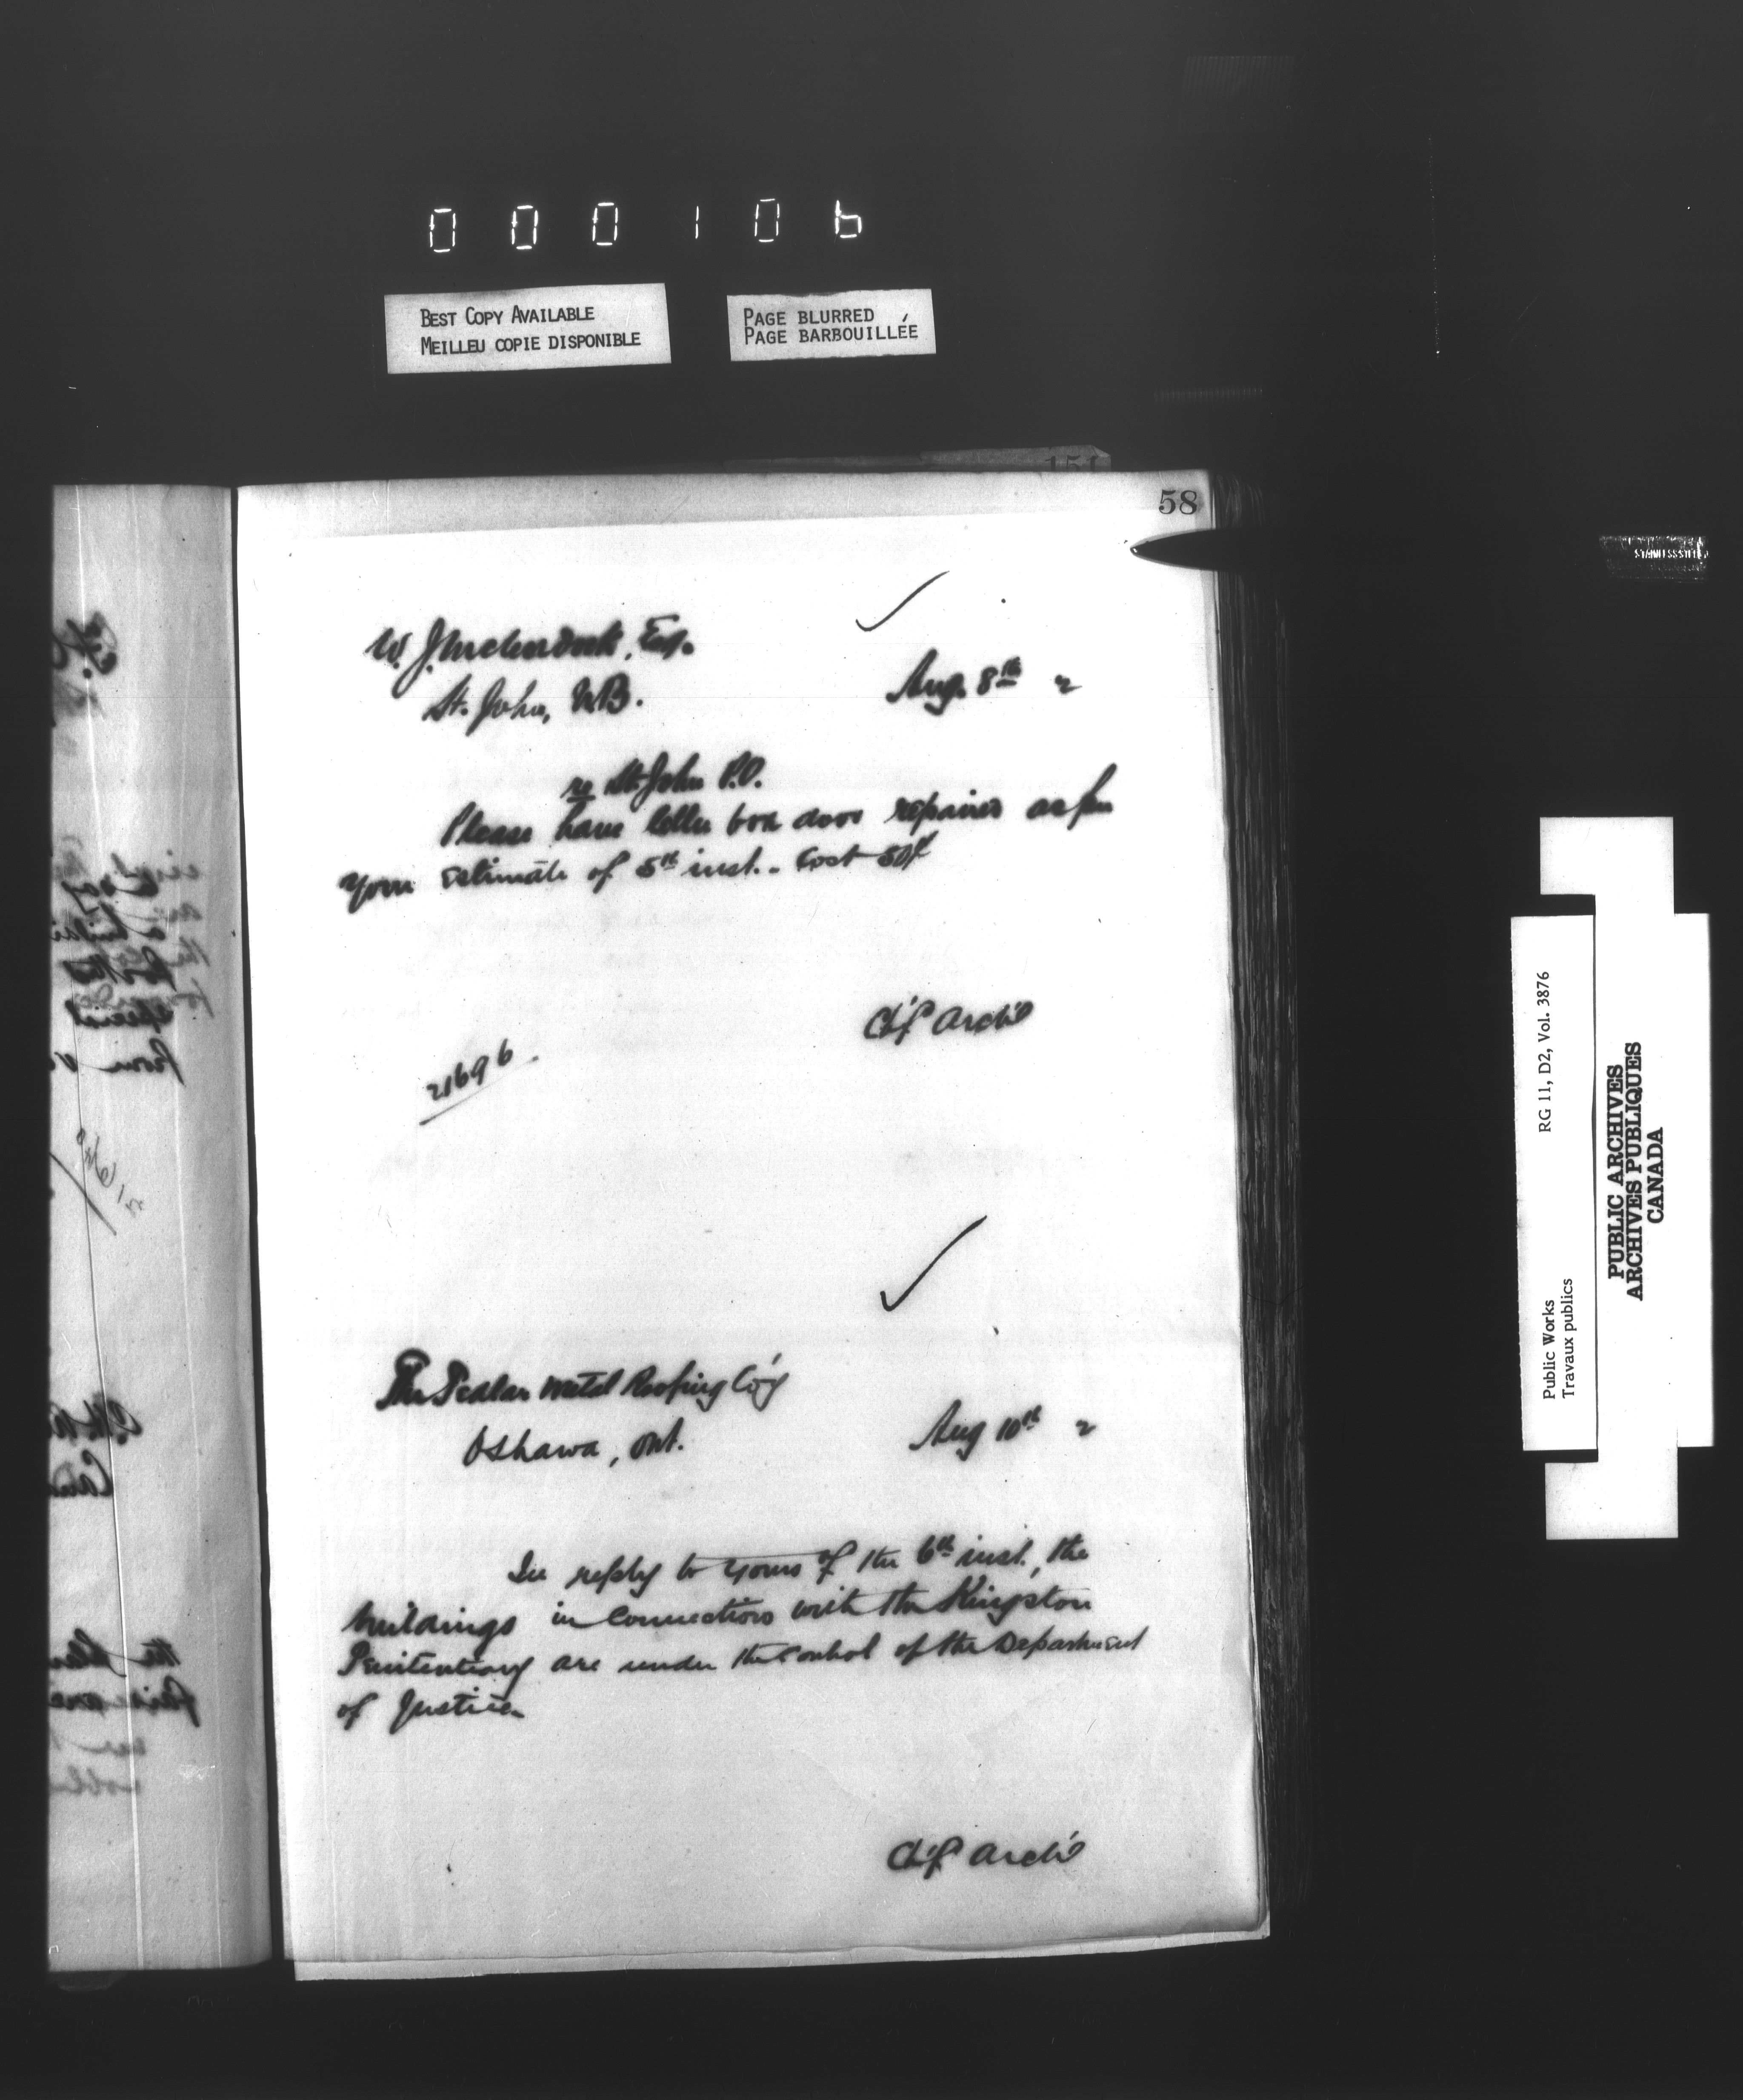 000106
BEST COPY AVAILABLE
MEILLEU COPIE DISPONIBLE
PAGE BLURRED
PAGE BARBOUILLÉE
151
58
W. J. Esq.
St. John, N.B.
Aug. 8th
re St. John P.O.
Please have letter box door repaired as per
your Estimate of 5th inst. - Cost 50¢
Ch'f Arch't
21696.
The Pedlar Metal Roofing Co'y
Oshawa, Ont.
Aug 10th
In reply to yours of the 6th inst., the
buildings in connection with the Kingston
Penitentiary are under the control of the Department
of Justice
Ch'f Arch't
STAINLESS STEEL
RG 11, D2, Vol. 3876
Public Works
Travaux publics
PUBLIC ARCHIVES
ARCHIVES PUBLIQUES
CANADA